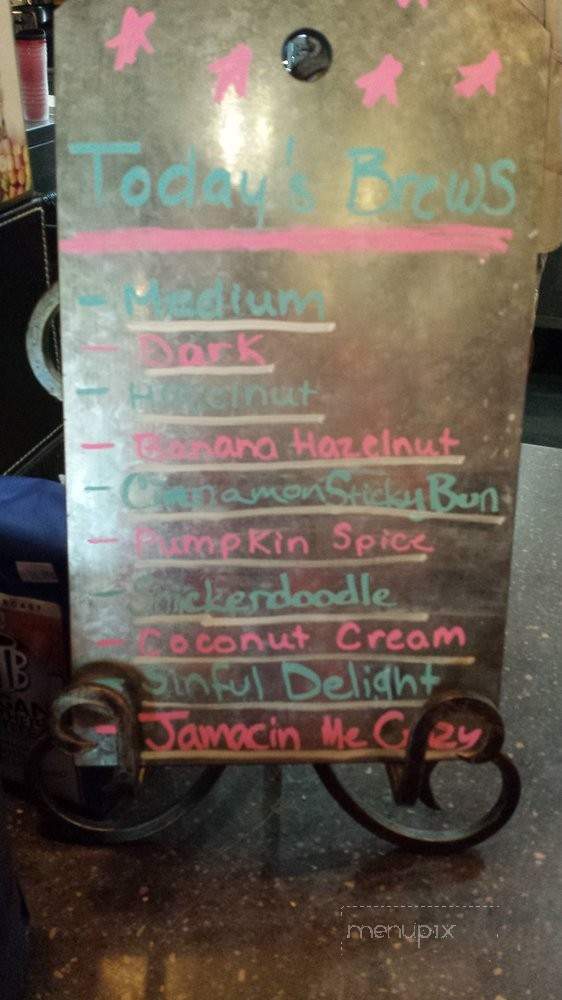 Today's Brews
- Medium
- Dark
- Hazelnut
- Banana Hazelnut
- Cinnamon Sticky Bun
- Pumpkin Spice
- Snickerdoodle
- Coconut Cream
- Sinful Delight
- Jamacin Me Crazy
menupix